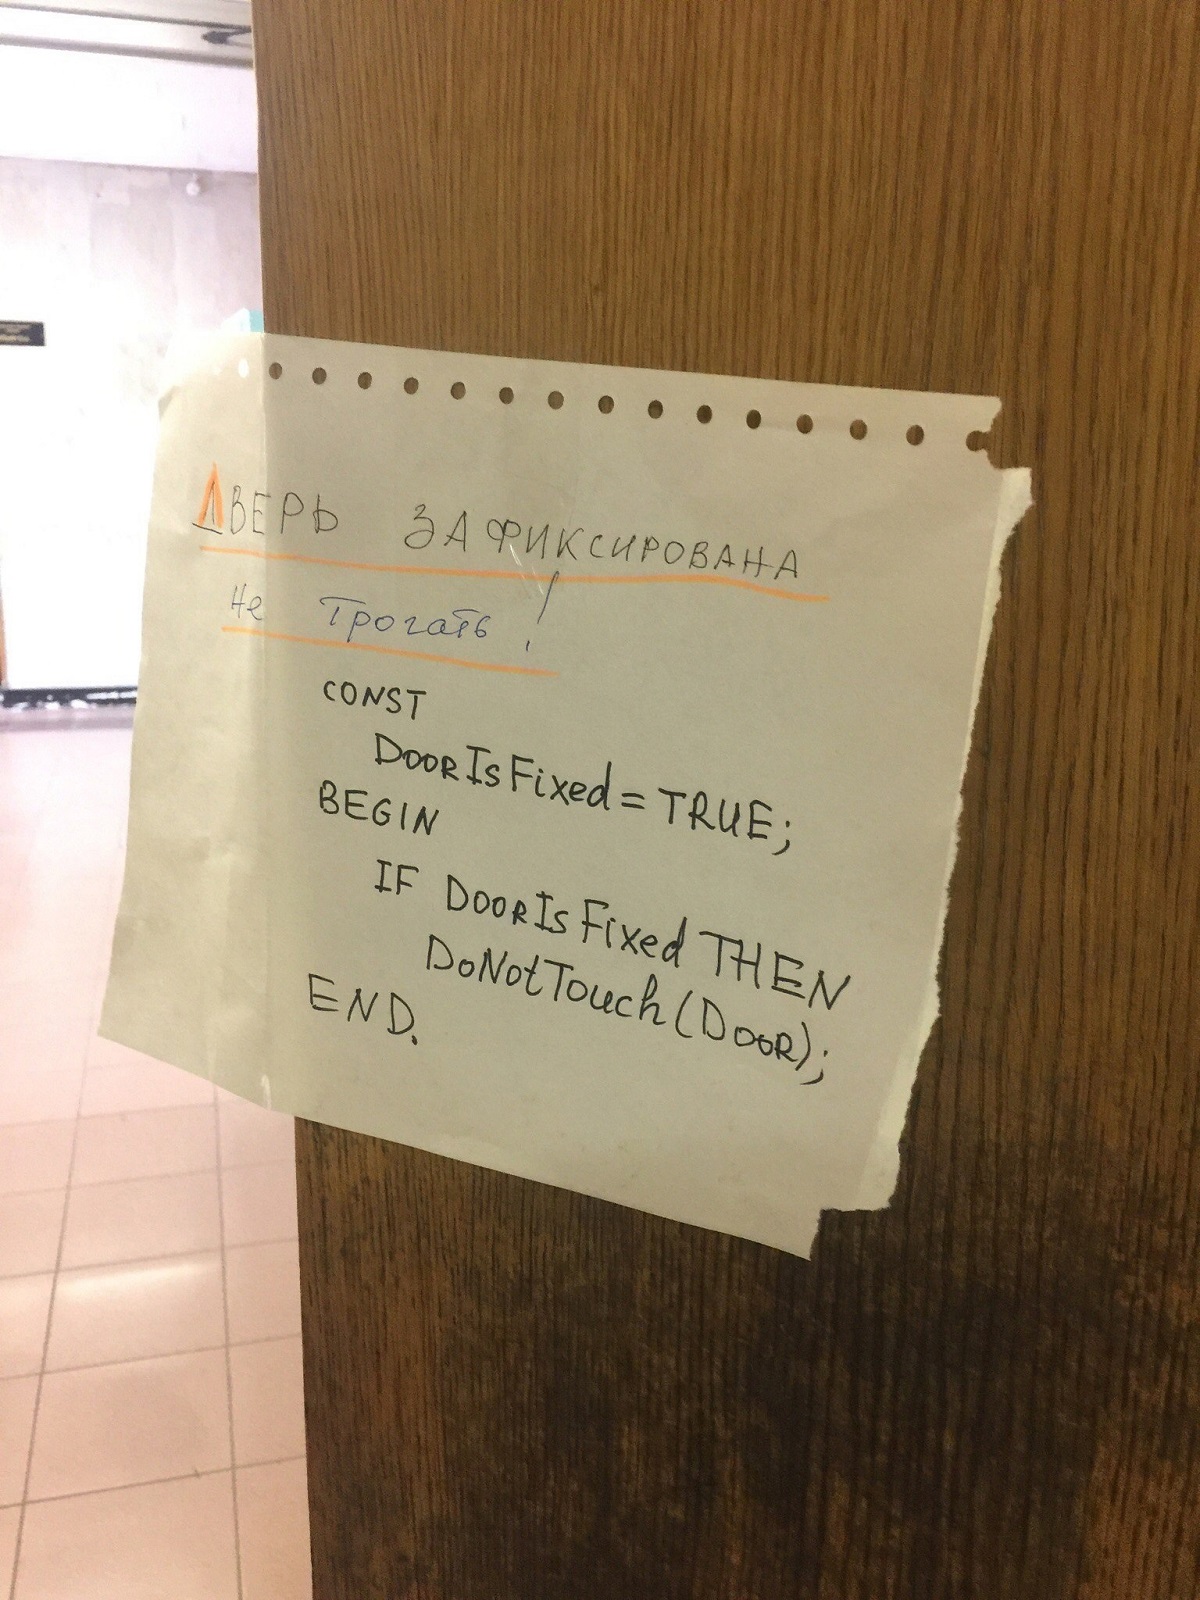 ДВЕРЬ ЗАФИКСИРОВАНА
Не Трогать!
CONST
DOORIsFixed = TRUE;
BEGIN
IF DOORIsFixed THEN
DoNotTouch(DOOR);
END.